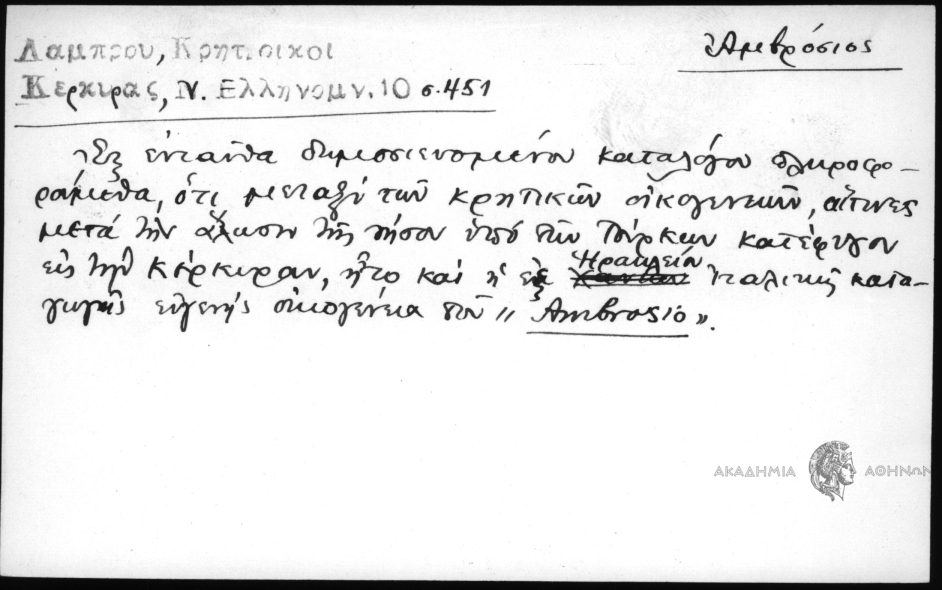 Λαμπρου, Κρητ. οικοι
Κερκιρας, Ν. Ελληνομν. 10 σ. 451
Ἀμβρόσιος
Ἐξ ἐνταῦθα δημοσιευομένου καταλόγου πληροφο-
ρούμεθα, ὅτι μεταξὺ τῶν κρητικῶν οἰκογενειῶν, αἵτινες
μετὰ τὴν ἅλωσιν τῆς νήσου ὑπὸ τῶν Τούρκων κατέφυγον
εἰς τὴν Κέρκυραν, ἦτο καὶ ἡ ἐξ Ἡρακλείου Ἰταλικῆς κατα-
γωγῆς εὐγενὴς οἰκογένεια τοῦ « Ambrosio ».
ΑΚΑΔΗΜΙΑ ΑΘΗΝΩΝ